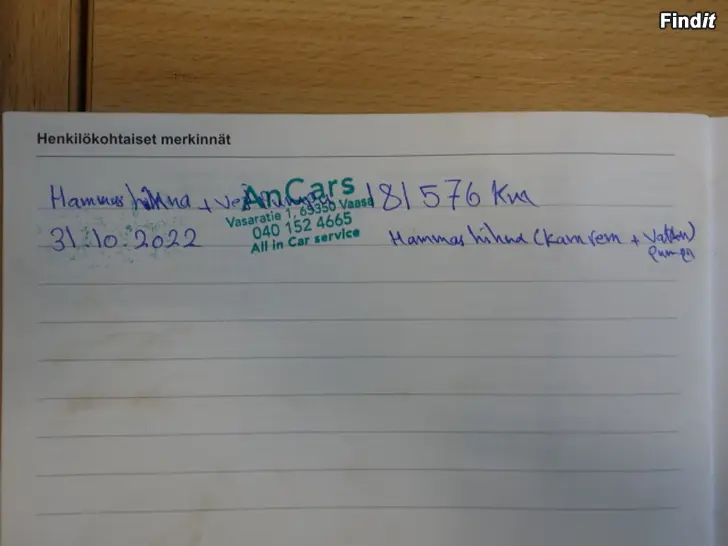 Findit
Henkilökohtaiset merkinnät
Hammashihna + vesipumppu 181 576 Km
AnCars
Vasaratie 1, 65350 Vaasa
040 152 4665
All in Car service
31.10.2022
Hammashihna (kamrem + Vatten
pump)